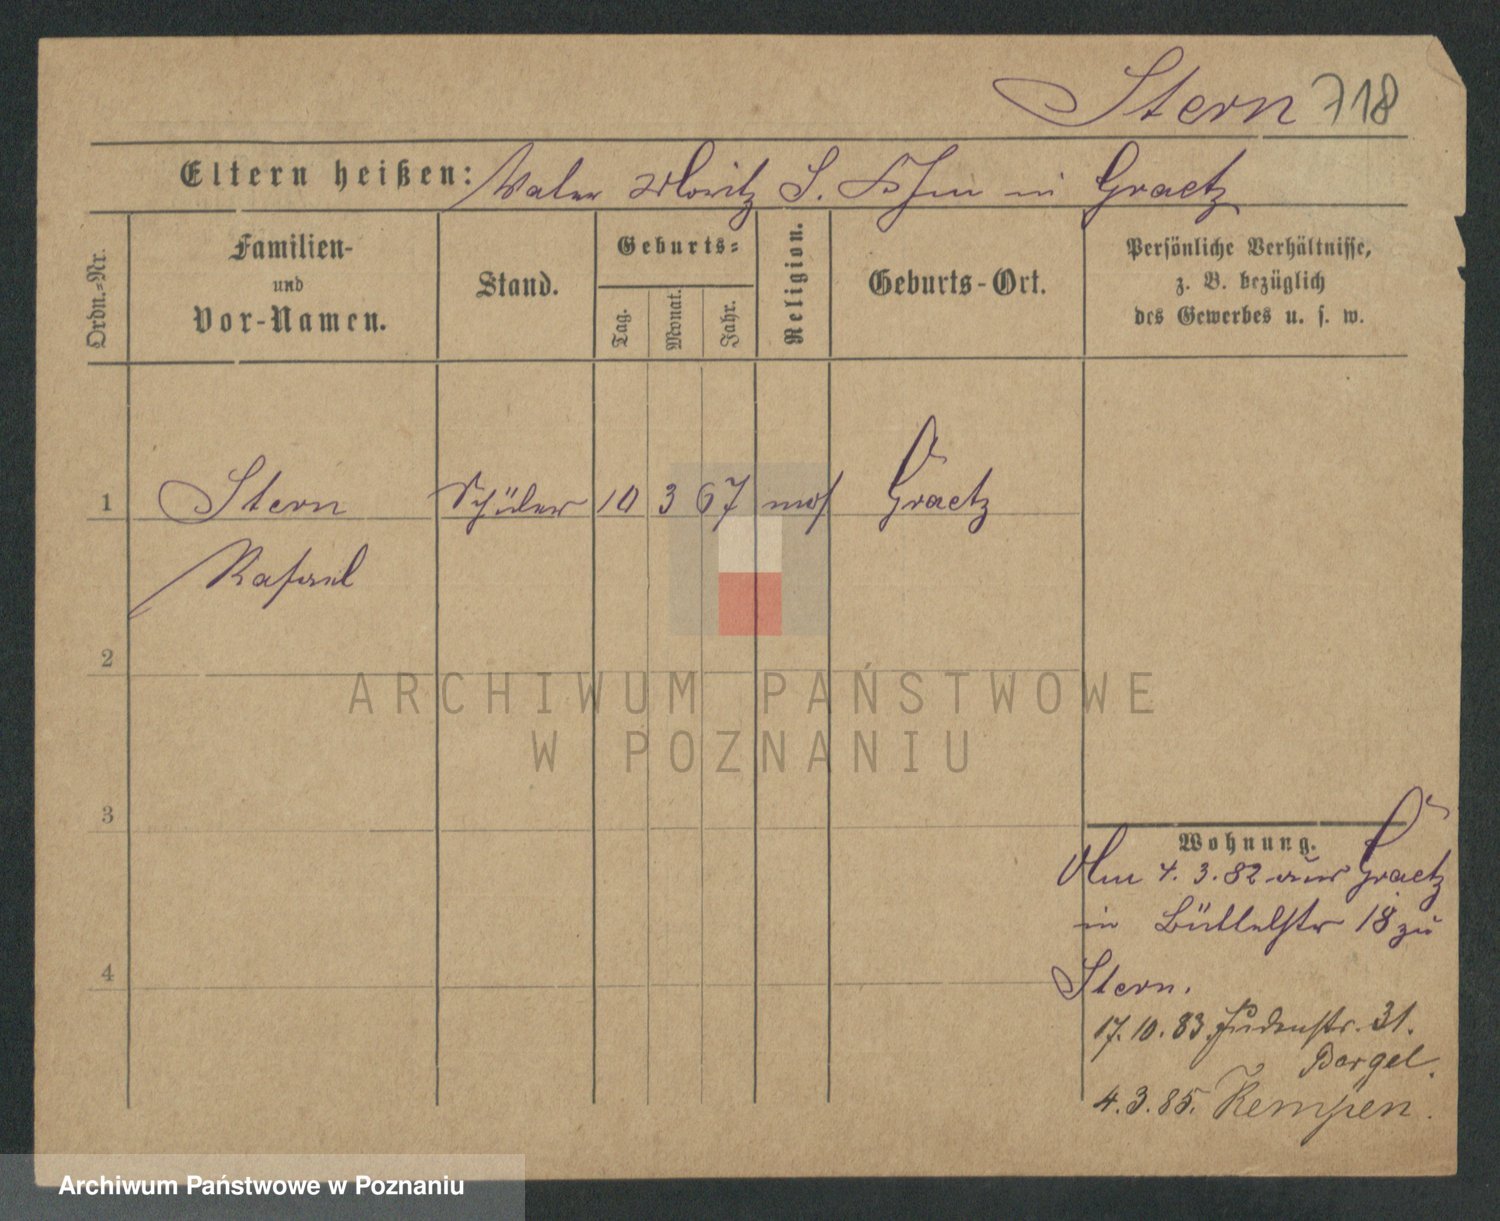 Stern 718
Eltern heißen: Vater Moritz S. in Graetz
Ordn.-Nr.
Familien-
und
Vor-Namen.
Stand.
Geburts-
Tag.
Monat.
Jahr.
Religion.
Geburts-Ort.
Persönliche Verhältnisse,
z. B. bezüglich
des Gewerbes u. s. w.
1 Stern Schüler 10 3 67 mos Graetz
Rafael
2
3
4
Wohnung.
Am 4. 3. 82 aus Graetz
in Büttelstr 18 zu
Stern.
17. 10. 83. Judenstr. 31.
4. 3. 85. Kempen.
ARCHIWUM PAŃSTWOWE
W POZNANIU
Archiwum Państwowe w Poznaniu